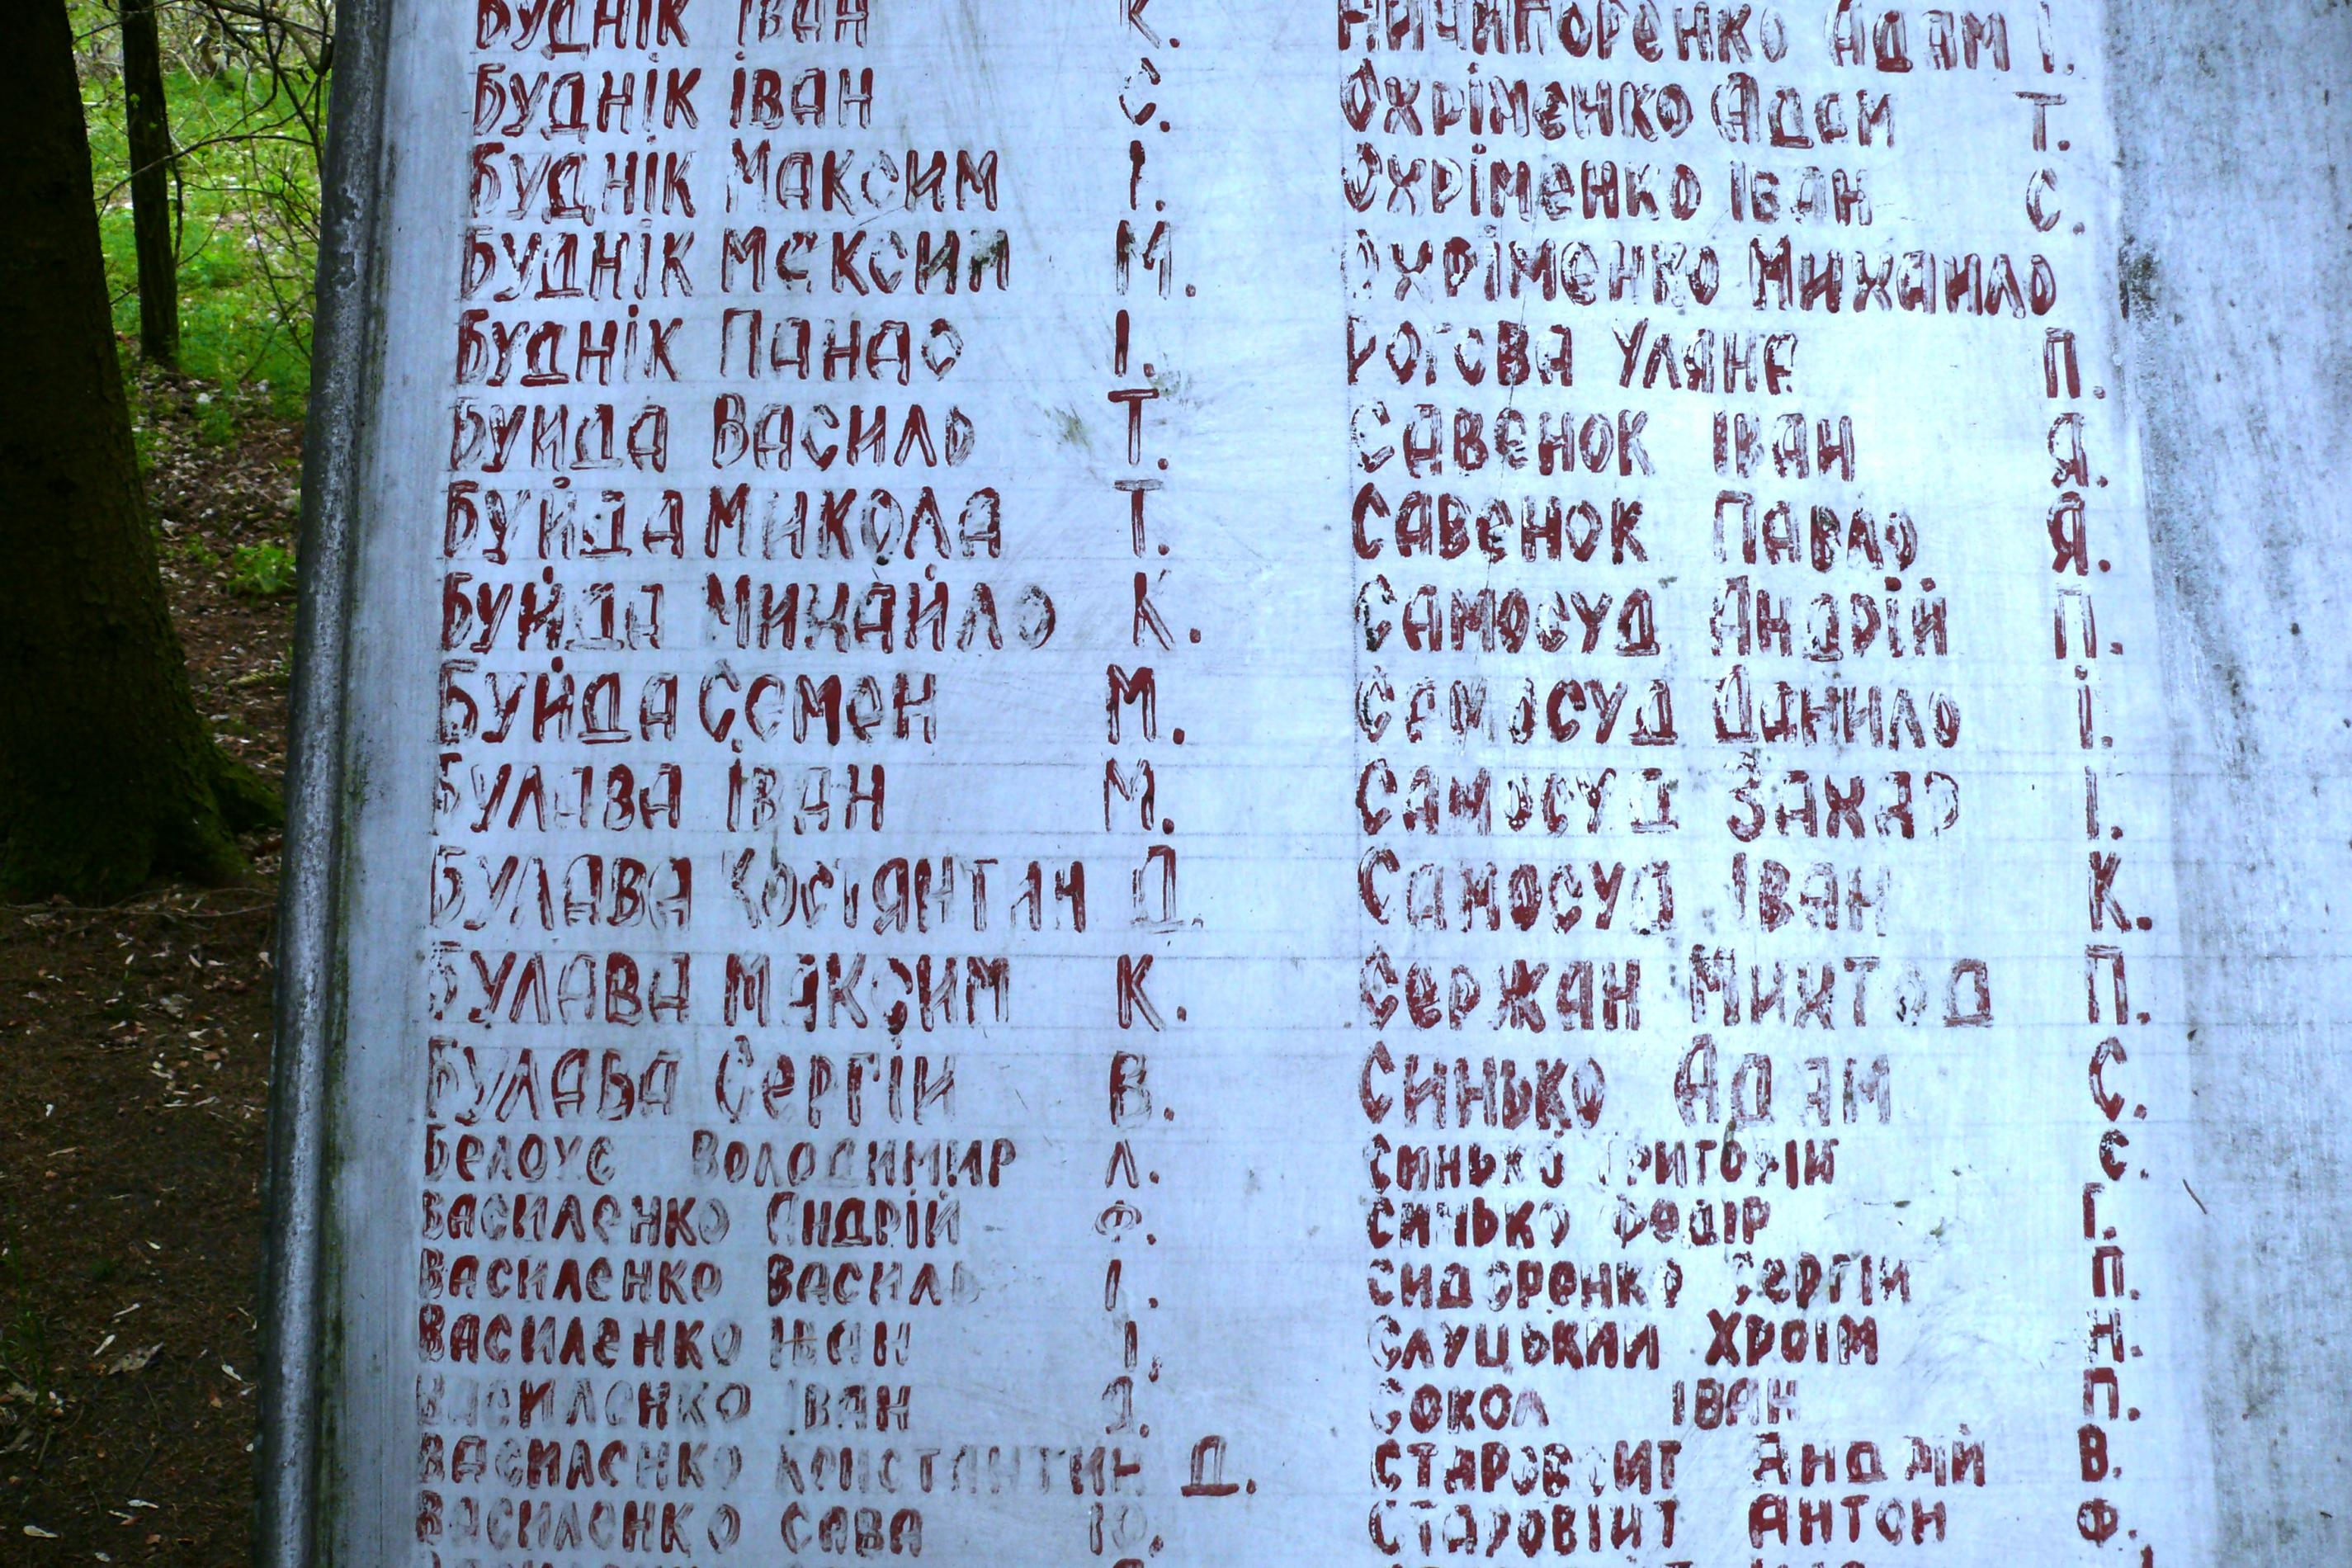 БУДНІК ІВАН К.
БУДНІК ІВАН С.
БУДНІК МАКСИМ І.
БУДНІК МАКСИМ М.
БУДНІК ПАНАС І.
БУИДА ВАСИЛЬ Т.
БУЙДА МИКОЛА Т.
БУЙДА МИХАЙЛО К.
БУЙДА СЕМЕН М.
БУЛАВА ІВАН М.
БУЛАВА КОСТЯНТИН Д.
БУЛАВА МАКСИМ К.
БУЛАВА СЕРГІЙ В.
БЕЛОУС ВОЛОДИМИР Л.
ВАСИЛЕНКО АНДРІЙ Ф.
ВАСИЛЕНКО ВАСИЛЬ І.
ВАСИЛЕНКО ІВАН І.
ВАСИЛЕНКО ІВАН
ВАСИЛЕНКО КОНСТАНТИН Д.
ВАСИЛЕНКО САВА Ю.
НИЧИПОРЕНКО АДАМ І.
ОХРІМЕНКО АДАМ Т.
ОХРІМЕНКО ІВАН С.
ОХРІМЕНКО МИХАИЛО
РОГОВА УЛЯНА П.
САВЕНОК ІВАН Я.
САВЕНОК ПАВЛО Я.
САМОСУД АНДРІЙ П.
САМОСУД ДАНИЛО І.
САМОСУД ЗАХАР І.
САМОСУД ІВАН К.
СЕРЖАН МИХТОД П.
СИНЬКО АДАМ С.
СИНЬКО ГРИГОРІЙ С.
СИНЬКО ФЕДІР Г.
СИДОРЕНКО СЕРГІЙ П.
СЛУЦЬКИЙ ХРОІМ Н.
СОКОЛ ІВАН П.
СТАРОВОИТ АНДРІЙ В.
СТАРОВІИТ АНТОН Ф.